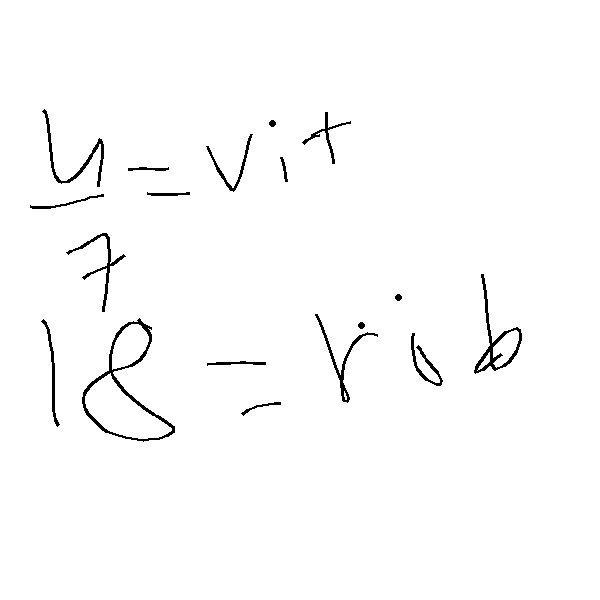 4/7 = vit
18 = rib